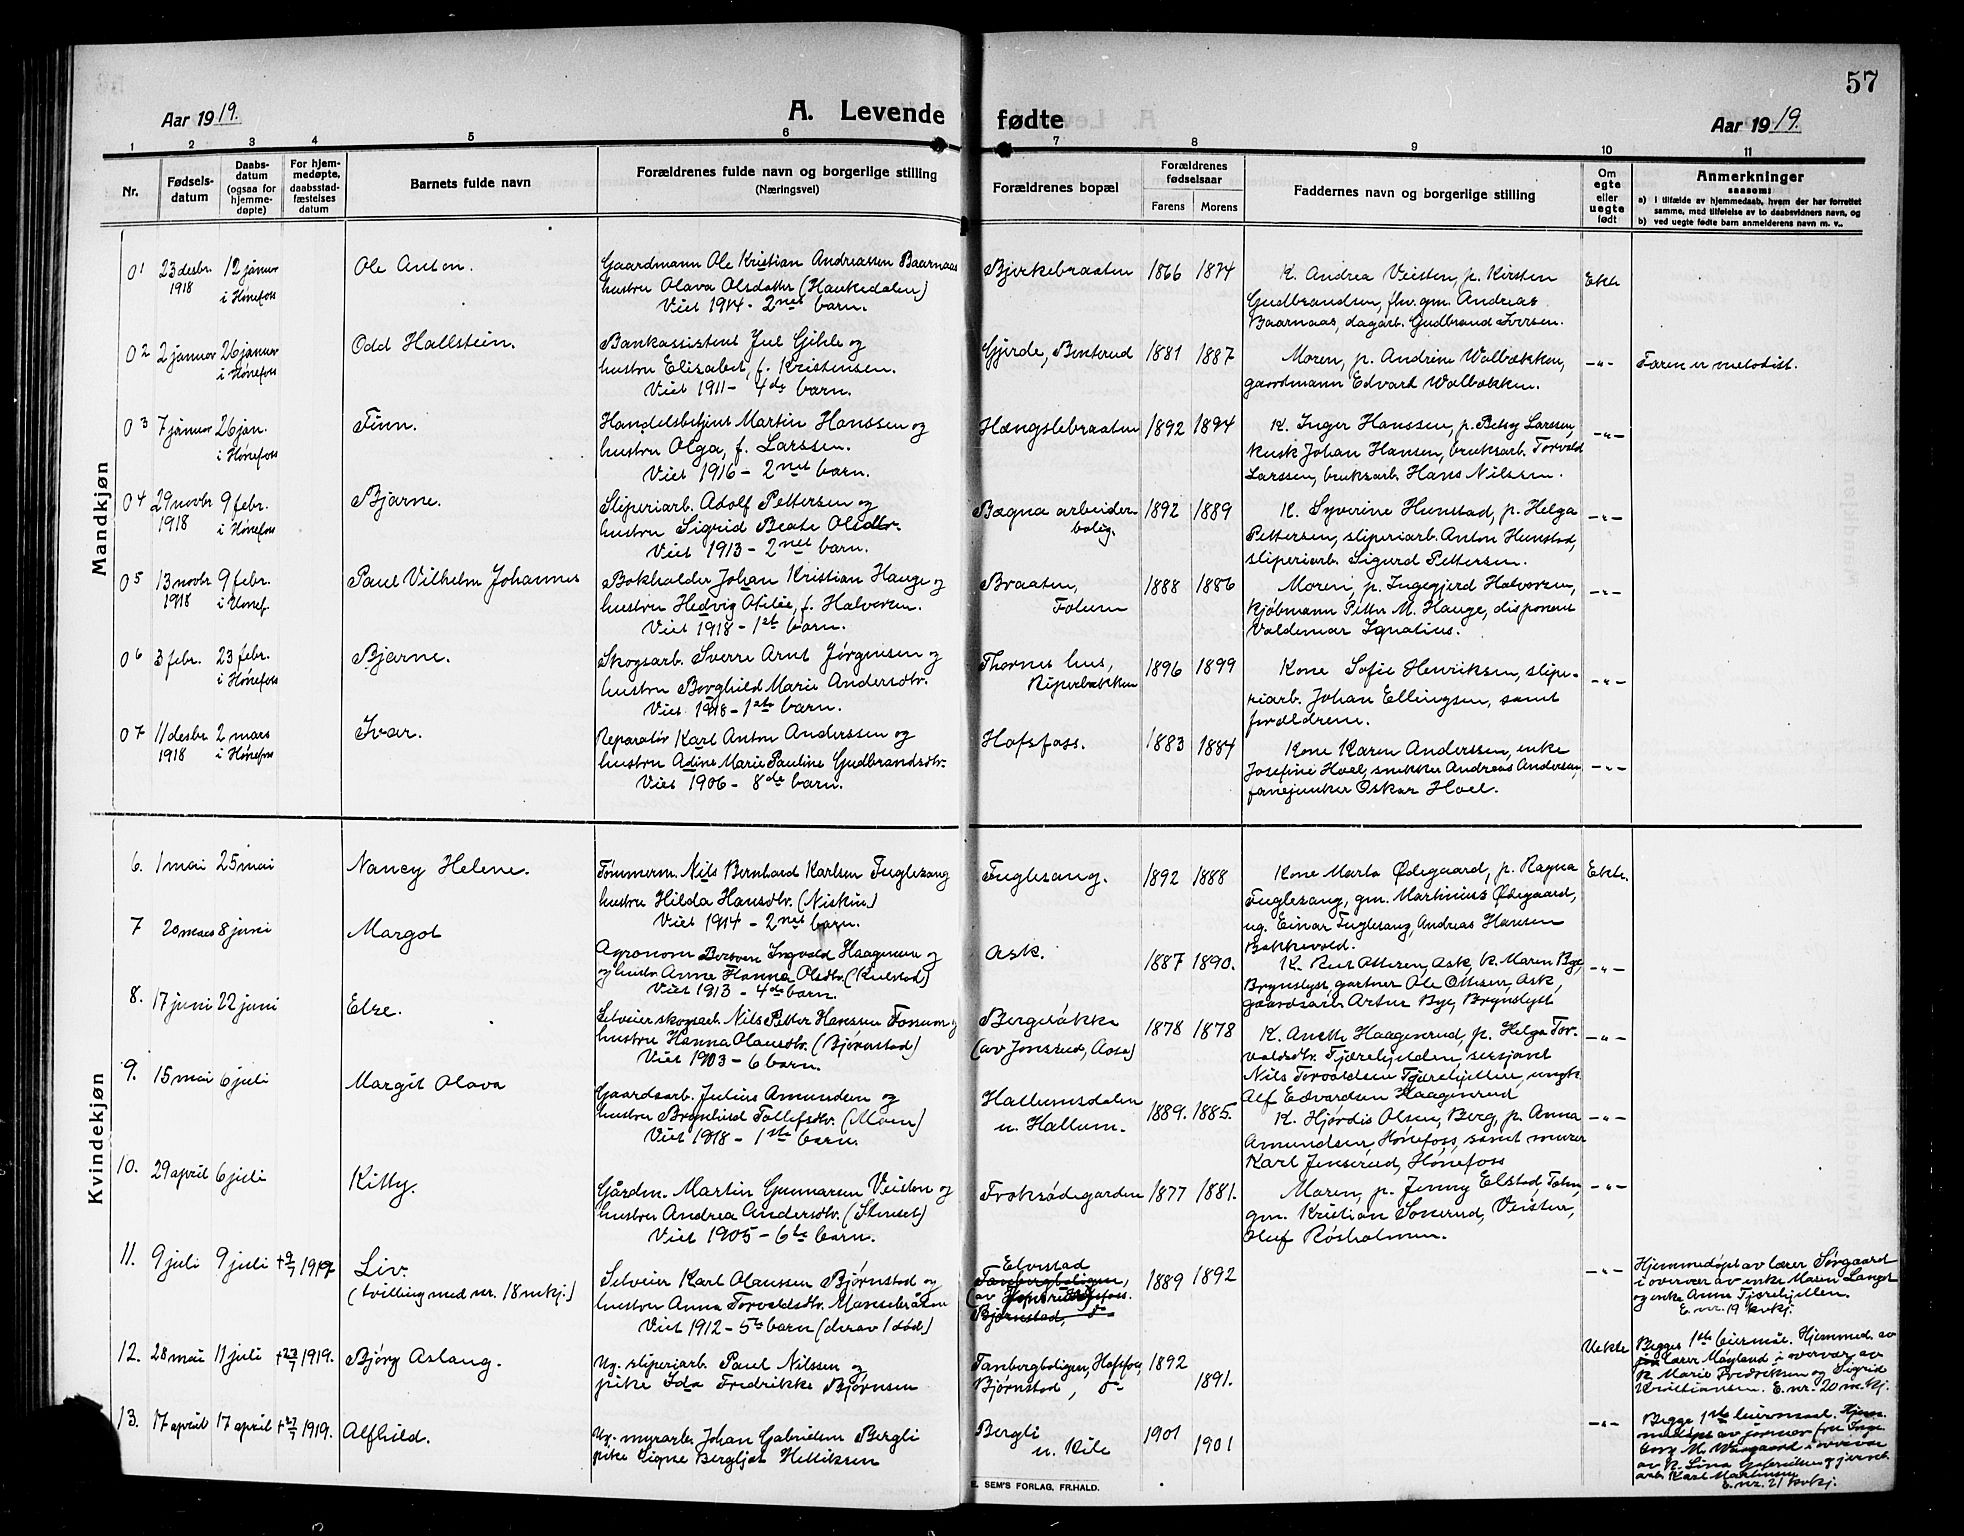 57
Aar 1919.
A. Levende fødte
Aar 1919.
1 2 3 4 5 6 7 8 9 10 11
Nr.
Fødselsdatum
Daabsdatum (ogsaa for hjemmedøpte)
For hjemmedøpte, daabsstadfæstelses datum
Barnets fulde navn
Forældrenes fulde navn og borgerlige stilling
(Næringsvei)
Forældrenes bopæl
Forældrenes fødselsaar
Farens Morens
Faddernes navn og borgerlige stilling
Om egte eller uegte født
Anmerkninger
saasom:
a) i tilfælde av hjemmedaab, hvem der har forrettet samme, med tilføielse av to daabsvidners navn, og
b) ved uegte fødte barn anmelderens navn m. v..
Mandkjøn
01 23 desbr. 1918 12 januar i Hønefoss Ole Anton. Gaardmann Ole Kristian Andreassen Baarnaas
hustru Olava Olsdatter (Haukedalen)
Viet 1914 - 2net barn.
Bjerkebraaten 1866 1874
K. Andrea Veisten, p. Kirsten
Gudbrandsen, fhv. gm. Andreas
Baarnaas, dagarb. Gudbrand Iversen.
Ekte
02 2 januar 26 januar i Hønefoss Odd Hallstein. Bankassistent Jul Gihle og
hustru Elisabet, f. Kristensen.
Viet 1911 - 4de barn.
Gjerde, Benterud 1881 1887
Moren, p. Andrine Wolbækken,
gaardmann Edvart Wolbækken.
-"- Faren er metodist.
03 7 januar 26 jan. i Hønefoss Finn. Handelsbetjent Martin Hanssen og
hustru Olga, f. Larssen.
Viet 1916 - 2net barn.
Hængslebraaten 1892 1894
K. Inger Hanssen, p. Betsy Larssen,
kusk Johan Hansen, bruksarb. Torvald
Larssen, bruksarb. Hans Nilssen.
-"-
04 29 novbr 1918 9 febr. i Hønefoss Bjarne. Sliperiarb. Adolf Pettersen og
hustru Sigrid Beate Olsdtr.
Viet 1913 - 2net barn.
Bægna arbeider-
bolig. 1892 1889
K. Syverine Hunstad, p. Helga
Pettersen, sliperiarb. Anton Hunstad,
sliperiarb. Sigurd Pettersen.
-"-
05 13 novbr 1918 9 febr. i Hønef. Paul Vilhelm Johannes Bokholder Johan Kristian Hauge og
hustru Hedvig Otilie, f. Halvorsen.
Viet 1918 - 1ste barn.
Braaten,
Folum 1888 1886
Moren, p. Ingegjerd Halvorsen,
kjøbmann Petter M. Hauge, disponent
Valdemar Ignatius.
-"-
06 3 febr. 23 febr. i Hønefoss Bjarne. Skogsarb. Sverre Arnt Jørgensen og
hustru Borghild Marie Andersdtr.
Viet 1918 - 1ste barn.
Thornes hus,
Riperbækken 1896 1899
Kone Sofie Henriksen, slipe-
riarb. Johan Ellingsen, samt
forældrene.
-"-
07 11 desbr. 1918 2 mars i Hønefoss Ivar. Reparatør Karl Anton Anderssen og
hustru Adine Marie Pauline Gudbrandsdtr.
Viet 1906 - 8de barn.
Hofsfoss. 1883 1884
Kone Karen Anderssen, enke
Josefine Hoel, snekker Andreas Andersen,
fanejunker Oskar Hoel.
-"-
Kvindekjøn
6. 1 mai 25 mai Nancy Helene. Tømmerm. Nils Bernhard Karlsen Fuglesang
hustru Hilda Hansdtr. (Niskin)
Viet 1914 - 2net barn.
Fuglesang. 1892 1888
Kone Marta Ødegaard, p. Ragna
Fuglesang, gm. Martinius Ødegaard,
ug. Einar Fuglesang, Andreas Hansen
Bakkevold.
Ekte.
7 20 mars 8 juni Margot Agronom Bersven Ingvald Haagensen og
og hustr. Anne Hanna Olsdtr. (Rulstad)
Viet 1913 - 4de barn.
Ask. 1887 1890.
K. Rut Ottesen, Ask, k. Maren Bye,
Brynslyst, gartner Ole Ottesen, Ask,
gaardsarb. Artur Bye, Brynslyst
-"-
8. 17 juni 22 juni Else. Selveier skogsarb. Nils Petter Hansen Fossum og
hustru Hanna Olausdtr. (Bjørnstad)
Viet 1903 - 6 barn.
Bergesløkke
(av Jonsrud, Aasa) 1878 1878
K. Anette Haagenrud, p. Helga Tor-
valdsdtr. Tjærehjellen, sersjant
Nils Torvaldsen Tjærehjellen, ungk.
Alf Edvardsen Haagenrud
-"-
9. 15 mai 6 juli Margit Olava Gaardsarb. Julius Amundsen og
hustru Brynhild Tollefsdtr. (Moen)
Viet 1918 - 1ste barn.
Hallumsdalen
u. Hallum. 1889. 1885.
K. Hjørdis Olsen, Berg, p. Anna
Amundsen, Hønefoss, samt murer
Karl Jenserud, Hønefoss
-"-
10. 29 april 6 juli Kitty. Gårdm. Martin Gunnarsen Veisten og
hustru Andrea Andersdtr. (Stenset)
Viet 1905 - 6te barn.
Froksødegarden 1877 1881.
Moren, p. Jenny Elstad
gm. Kristian Sonerud, Veisten,
Oluf Røsholmen.
-"-
11. 9 juli 9 juli + 9/7 1919 Liv.
(tvilling med nr. 18 mkj.)
Selveier Karl Olaussen Bjørnstad og
hustru Anna Torvaldsdtr. Mansebråten
Viet 1912 - 5te barn (derav 1 død)
Elvestad
Tanbergboligen,
Bjørnstad, do
1889 1892
-"- Hjemmedøpt av lærer Sørgaard
i overvær av enke Maren Langst
og enke Anne Tjærehjellen.
E. nr. 19 kvkj.
12. 28 mai 11 juli + 23/7 1919. Bjørg Aslaug. Ug. sliperiarb. Paul Nilssen og
pike Ida Fredrikke Bjørnsen
Tanbergboligen, Hofsfoss,
Bjørnstad, do 1892 1891.
Uekte Begges 1ste leiermål. Hjemmed. av
lærer Møyland i overvær av
K. Marie Fredriksen og Sigrid
Kristiansen. E. nr. 20 m.kj.
13. 17 april 17 april + 27/7 1919. Alfhild. Ug. myrarb. Johan Gabrielsen Bergli
pike Signe Bergljot Helliksen
Bergli
u. Kile 1901 1901
-"- Begge 1ste leiermaal. Hjem-
medøpt av jormor fru Inge-
borg M. Waagaard i overvær
av k. Lina Gabrielsen og jernb.
arb. Karl Martinsen
E. nr. 21 kvkj.
E. SEM'S FORLAG, FR.HALD.